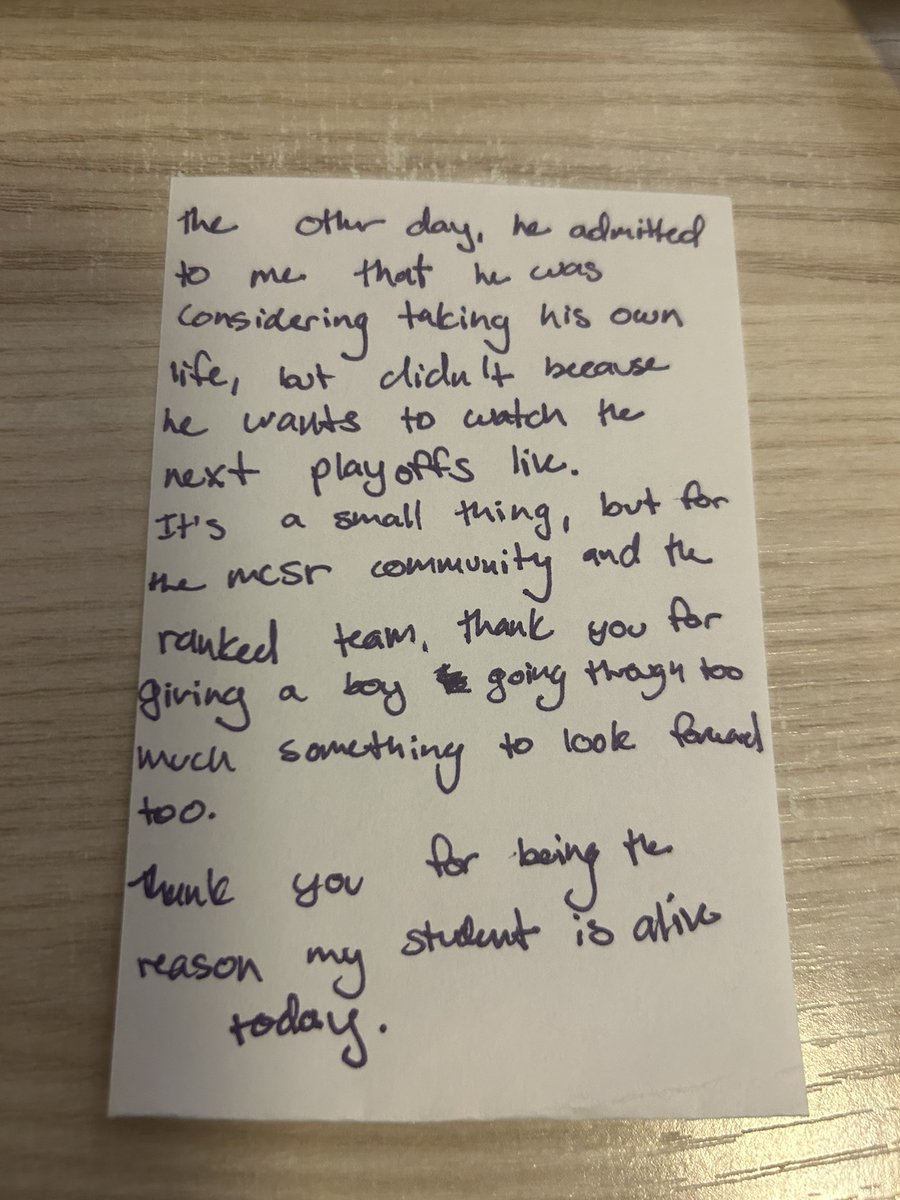 the other day, he admitted
to me that he was
considering taking his own
life, but didn't because
he wants to watch the
next playoffs live.
It's a small thing, but for
the mcsr community and the
ranked team, thank you for
giving a boy going through too
much something to look forward
too.
thank you for being the
reason my student is alive
today.